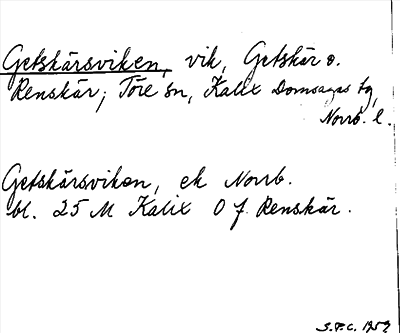 Getskärsviken, vik, Getskär o.
Renskär, Töre sn, Kalix Domsagas tg,
Norrb. l.
Getskärsviken, ek Norrb.
bl. 25 M Kalix O f. Renskär.
S.F.C. 1959